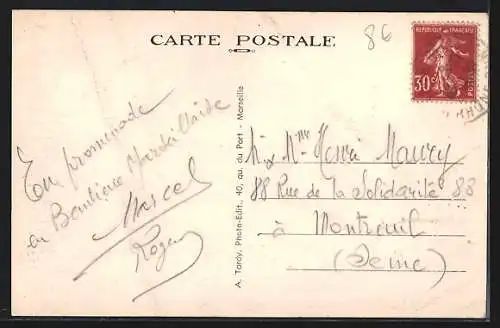 CARTE POSTALE
86
REPUBLIQUE FRANÇAISE
30c
POSTES
En promenade
en Banlieue Marseillaise
Marcel
Roger
A. Tardy, Photo-Edit., 40, qu. du Port - Marseille
M. & Mme Henri Maury
88 Rue de la Solidarité 88
à Montreuil
(Seine)